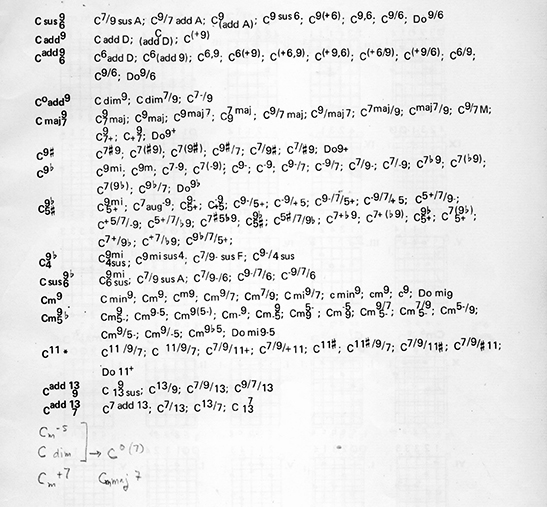 C sus 9/6 C7/9 sus A; C9/7 add A; C9(add A); C9 sus 6; C9(+6); C9,6; C9/6; Do9/6
C add9 C add D; C(add D); C(+9)
Cadd9/6 C6add D; C6(add 9); C6,9; C6(+9); C(+6,9); C(+9,6); C(+6/9); C(+9/6); C6/9;
C9/6; Do9/6
Coadd9 C dim9; C dim7/9; C7-/9
C maj9/7 C9/7maj; C9maj; C9maj7; C7/9 maj; C9/7 maj; C9/maj7; C7maj/9; Cmaj7/9; C9/7M;
C9/7+; C+9/7; Do9+
C9♯ C7♯9; C7(♯9); C7(9♯); C9♯/7; C7/9♯; C7/♯9; Do9+
C9♭ C9mi; C9m; C7-9; C7(-9); C9-; C-9; C9-/7; C-9/7; C7/9-; C7/-9; C7♭9; C7(♭9);
C7(9♭); C9♭/7; Do9♭
C9♭/5♯ C9mi/5+; C7aug-9; C9-/5+; C-9/+5; C9-/5+; C-9/+5; C9-/7/5+; C-9/7/+5; C5+/7/9-;
C+5/7/-9; C5+/7/♭9; C7♯5♭9; C9♭/5♯; C5♯/7/9♭; C7+♭9; C7+(♭9); C9♭/5+; C7(9♭)/5+;
C7+/9♭; C+7/♭9; C9♭/7/5+;
C9♭/4 C9mi/4sus; C9mi sus4; C7/9- sus F; C9-/4 sus
C sus9♭/6 C9mi/6 sus; C7/9 sus A; C7/9-/6; C9-/7/6; C-9/7/6
Cm9 C min9; Cm9; Cm9; Cm9/7; Cm7/9; C mi9/7; c min9; cm9; c9; Do mi9
Cm9/5♭ Cm9/5-; Cm9-5; Cm9(5-); Cm-9/5; Cm9/5-; Cm9/5; Cm-9/5; Cm9/7/5-; Cm7/9/5-; Cm5-/9;
Cm9/5-; Cm9/-5; Cm9♭5; Do mi9-5
C11* C11/9/7; C 11/9/7; C7/9/11+; C7/9/+11; C11♯; C11♯/9/7; C7/9/11♯; C7/9/♯11;
Do 11+
Cadd 13/9 C 9/13 sus; C13/9; C7/9/13; C9/7/13
Cadd 13/7 C7 add 13; C7/13; C13/7; C 7/13
Cm-5
C dim → Co(7)
Cm+7 Cmmaj 7